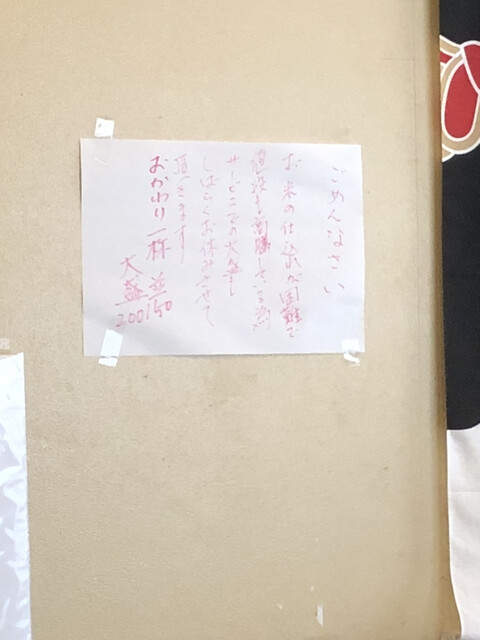 ごめんなさい
お米の仕込が困難で
値段も高騰している為
サービスでの大盛を
しばらくお休みさせて
頂きます!
おかわり一杯 並 150
大盛 200